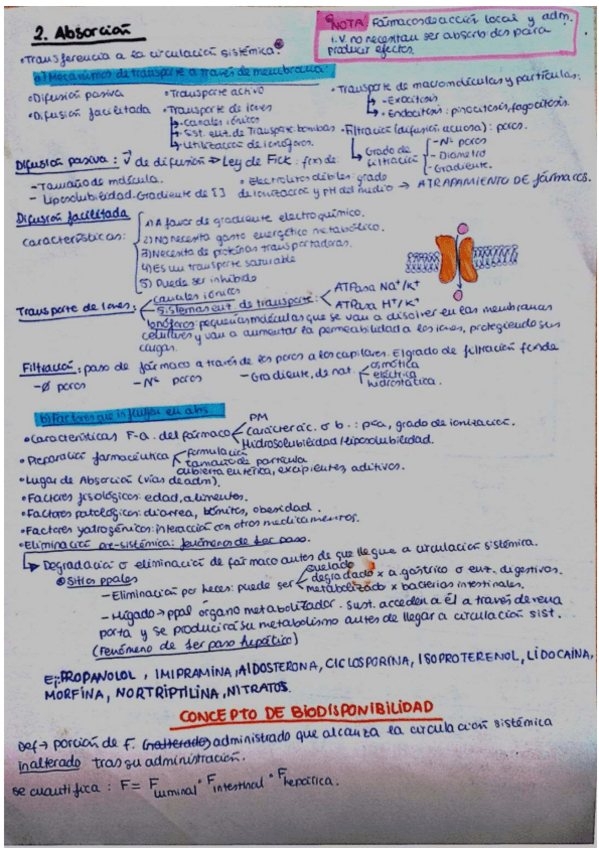 2. Absorción
NOTA: Fármacos de acción local y adm.
i.v. no necesitan ser absorbidos para
producir efectos.
• Transferencia a la circulación sistémica.
a) Mecanismos de transporte a través de membrana
• Difusión pasiva
• Difusión facilitada
• Transporte activo
• Transporte de iones
- canales iónicos
- Sist. enz. de Transporte bombas
- Utilización de ionóforos.
• Transporte de macromoléculas y partículas:
- Exocitosis
- Endocitosis: pinocitosis, fagocitosis.
• Filtración (difusión acuosa): poros.
Grado de filtración
- Nº poros
- Diámetro
- Gradiente.
Difusión pasiva: V de difusión → Ley de Fick: fon de:
- Tamaño de molécula.
- Liposolubilidad-Gradiente de [ ]
• Electrolitos débiles: grado
de ionización y pH del medio → ATRAPAMIENTO DE fármacos.
Difusión facilitada
características:
1) A favor de gradiente electroquímico.
2) No necesita gasto energético metabólico.
3) Necesita de proteínas transportadoras.
4) Es un transporte saturable
5) Puede ser inhibido
Transporte de Iones:
canales iónicos
Sistemas enz. de transporte:
ATPasa Na⁺/K⁺
ATPasa H⁺/K⁺
Ionóforos: pequeñas moléculas que se van a disolver en las membranas
celulares y van a aumentar la permeabilidad a los iones, protegiendo sus
cargas.
Filtración: paso de fármaco a través de los poros a los capilares. El grado de filtración fon de
- Ø poros
- Nº poros
- Gradiente, de nat.
osmótica
eléctrica
hidrostática.
b) Factores que influyen en abs.
• Características F-Q. del fármaco
PM
Caracter ác. o b.: pKa, grado de ionización.
Hidrosolubilidad/liposolubilidad.
• Preparación farmacéutica
formulación
tamaño de partícula
cubierta entérica, excipientes, aditivos.
• Lugar de Absorción (vías de adm).
• Factores fisiológicos: edad, alimentos.
• Factores patológicos: diarrea, vómitos, obesidad.
• Factores yatrogénicos: interacción con otros medicamentos.
• Eliminación pre-sistémica: fenómenos de 1er paso.
Degradación o eliminación de fármaco antes de que llegue a circulación sistémica.
Sitios ppales
- Eliminación por heces: puede ser
quelado
degradado x a. gástrico o enz. digestivos.
metabolizado x bacterias intestinales.
- Hígado → ppal organo metabolizador. Sust. acceden a él a través de vena
porta y se producirá su metabolismo antes de llegar a circulación sist.
(Fenómeno de 1er paso hepático)
Ej: PROPANOLOL, IMIPRAMINA, AlDOSTERONA, CICLOSPORINA, ISOPROTERENOL, LIDOCAÍNA,
MORFINA, NORTRIPTILINA, NITRATOS.
CONCEPTO DE BIODISPONIBILIDAD
Def → porción de F. administrado que alcanza la circulación sistémica
inalterado tras su administración.
se cuantifica: F = F luminal · F intestinal · F hepática.